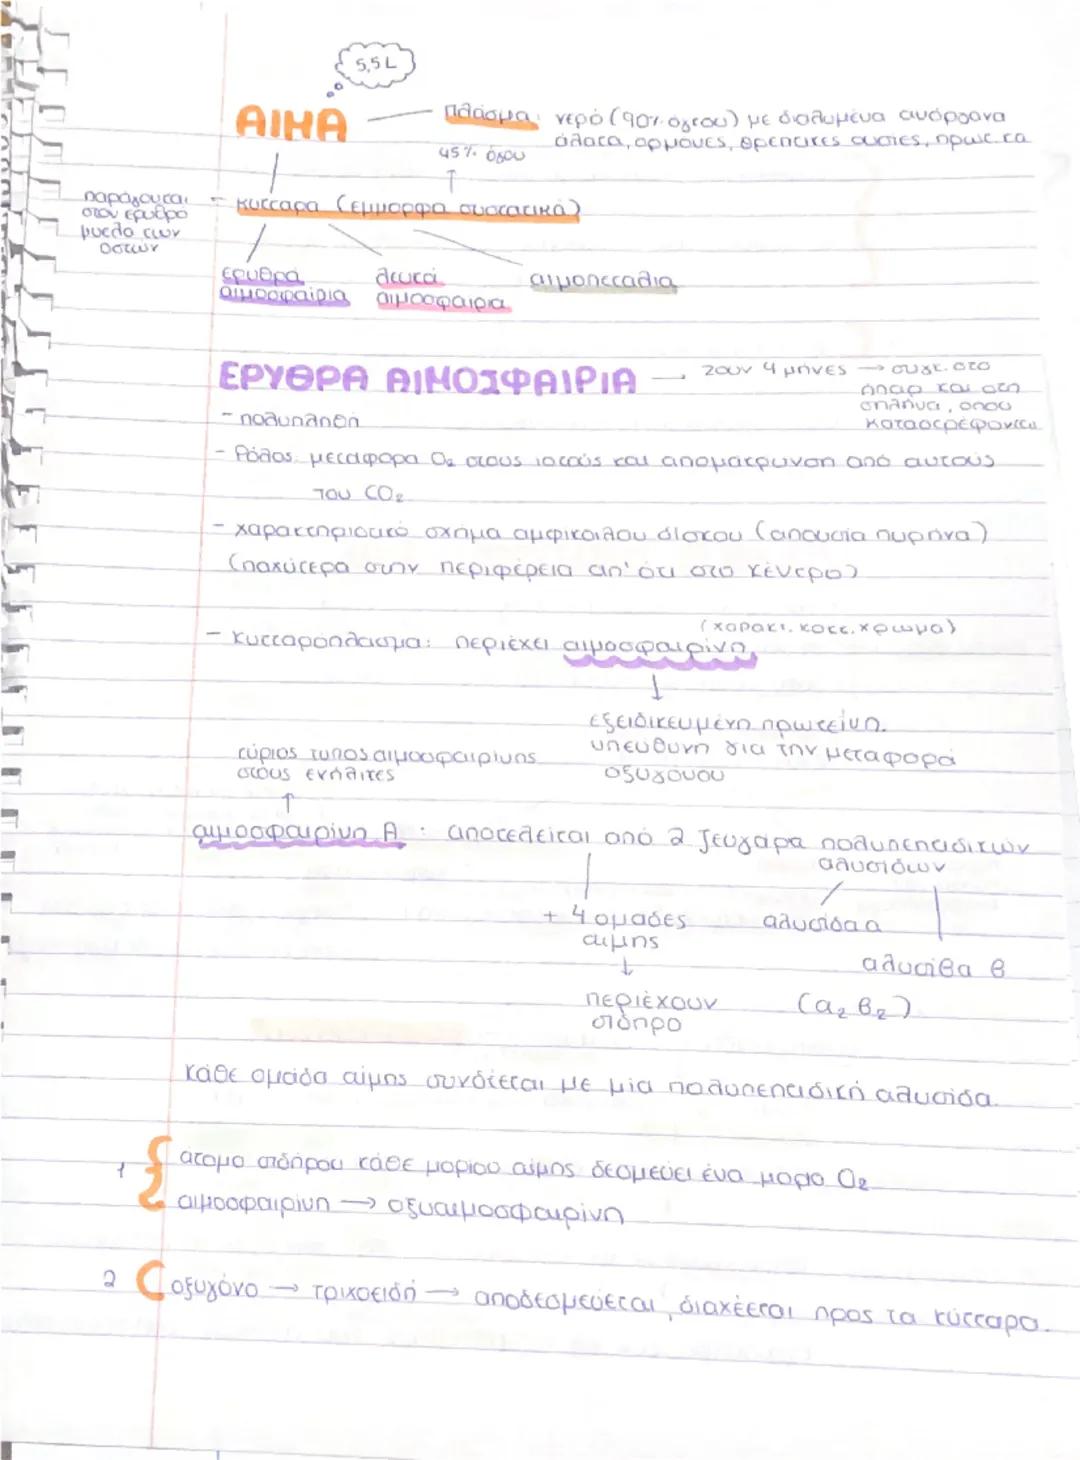 5,5L
ΑΙΜΑ
πλάσμα: νερό (90% όγκου) με διαλυμένα ανόργανα
άλατα, ορμόνες, θρεπτικές ουσίες, πρωτ. κα
45% όγκου
παράγονται
στον ερυθρό
μυελό των
οστών
- κύτταρα (έμμορφα συστατικά)
ερυθρά
αιμοσφαίρια
λευκά
αιμοσφαίρια
αιμοπετάλια
ΕΡΥΘΡΑ ΑΙΜΟΣΦΑΙΡΙΑ → ζουν 4 μήνες → συγκ. στο
ήπαρ και στη
σπλήνα, όπου
καταστρέφονται
- πολυπληθή
- Ρόλος: μεταφορά O₂ στους ιστούς και απομάκρυνση από αυτούς
του CO₂
- χαρακτηριστικό σχήμα αμφίκοιλου δίσκου (απουσία πυρήνα)
(παχύτερα στην περιφέρεια απ' ότι στο κέντρο)
(χαρακτ. κοκκ. χρώμα)
- κυτταρόπλασμα: περιέχει αιμοσφαιρίνη
↓
εξειδικευμένη πρωτεΐνη.
υπεύθυνη για την μεταφορά
οξυγόνου
κύριος τύπος αιμοσφαιρίνης
στους ενήλικες
↑
αιμοσφαιρίνη Α : αποτελείται από 2 ζευγάρα πολυπεπτιδικών
αλυσίδων
+ 4 ομάδες
αίμης
↓
περιέχουν
σίδηρο
αλυσίδα α
αλυσίδα β
(α₂ β₂)
κάθε ομάδα αίμης συνδέεται με μία πολυπεπτιδική αλυσίδα.
1 { άτομο σιδήρου κάθε μορίου αίμης δεσμεύει ένα μόριο O₂
αιμοσφαιρίνη → οξυαιμοσφαιρίνη
2 ( οξυγόνο → τριχοειδή → αποδεσμεύεται, διαχέεται προς τα κύτταρα.